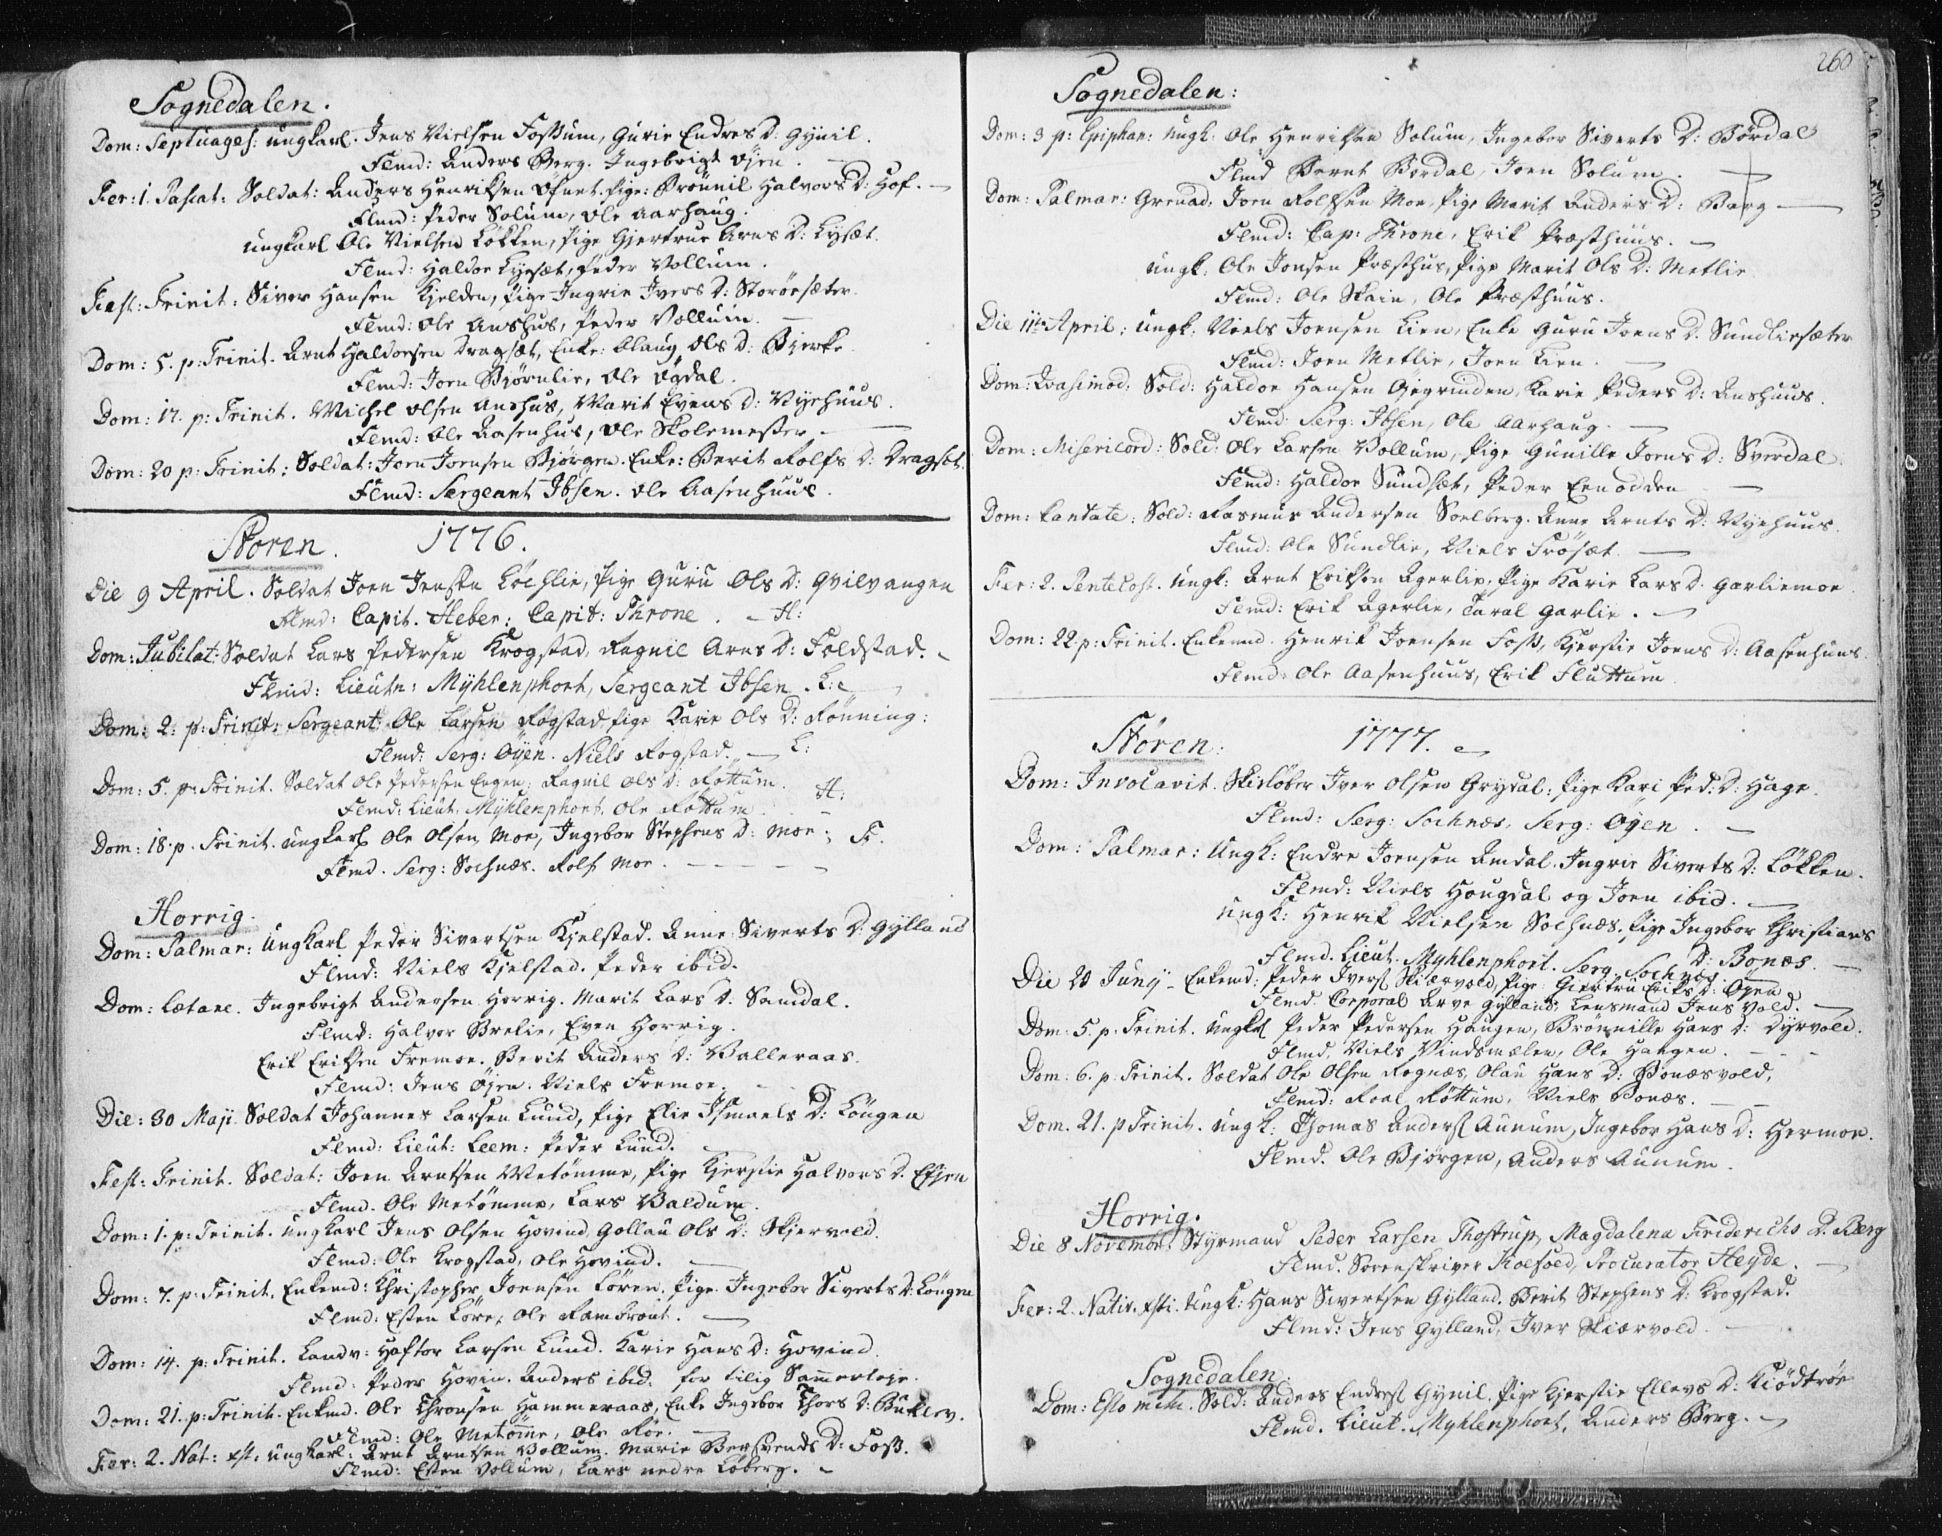 Sognedalen.
Dom: Septuages: ungkarl. Jens Nielsen Fossum, Gurie Endres D: Gynil.
Flmd: Anders Berg. Ingebrigt Øjen. —
Fer: 1. Pascat: Soldat: Anders Henriksen Øfnet. Pige: Brønnil Halvors D: Hof. —
Flmd: Peder Solum, Ole Aarhaug.
ungkarl Ole Nielsen Løkken, Pige Gjertrue Arns D: Lysæt.
Flmd: Haldor Lysæt, Peder Vollum.
Fest: Trinit: Siver Hansen Kjelden, Pige Ingrie Ivers D: Storøesæter.
Flmd: Ole Anshus, Peder Vollum. —
Dom: 5. p: Trinit. Arnt Haldorsen Dragsæt, Enke: Olaug Ols D: Bjerke.
Flmd: Joen Bjørnlie, Ole Øgdal.
Dom: 17. p: Trinit. Michel Olsen Anshus, Marit Evens D: Nyehuus.
Flmd: Ole Aasenhus, Ole Skolemester. —
Dom: 20 p: Trinit: Soldat: Joen Joensen Bjørgen. Enke: Berit Rolfs D: Dragset.
Flmd: Sergeant Ibsen. Ole Aasenhuus.
Støren. 1776.
Die 9 April. Soldat Joen Jensen Løchlie, Pige Guru Ols D: Qvilvangen
Flmd: Capit. Heber: Capit: Throne. — H:
Dom: Jubilat: Soldat Lars Pedersen Krogstad, Ragnil Arns D: Foldstad. —
Flmd: Lieutn: Myhlenphort, Sergeant Ibsen. L: —
Dom: 2: p: Trinit: Sergeant Ole Larsen Rogstad Pige Karie Ols D: Rønning:
Flmd: Serg: Øyen. Niels Rogstad. — L:
Dom: 5. p: Trinit. Soldat Ole Pedersen Engen, Ragnil Ols D: Røttum.
Flmd: Lieut. Myhlenphort, Ole Røttum. — H:
Dom: 18. p. Trinit. ungkarl Ole Olsen Moe, Ingebor Stephens D: Moe; F.
Flmd. Serg: Sochnæs. Rolf Moe. — — — —
Horrig.
Dom: Palmar: Ungkarl Peder Sivertsen Kjelstad. Anne Siverts D: Gylland
Flmd: Niels Kjelstad. Peder ibid.
Dom: Lætare. Ingebrigt Andersen Horrig. Marit Lars D. Samdal.
Flmd: Halvor Brelie, Even Horrig.
Erik Eriksen Fremoe. Berit Anders D: Valleraas.
Flmd: Jens Øjen. Niels Fremoe.
Die: 30 Maji Soldat Johannes Larsen Lund, Pige Elie Ismaels D: Løngen
Flmd: Lieut: Leem: Peder Lund. —
Fest: Trinit. Soldat: Joen Arntsen Metømme, Pige Kjerstie Halvors D. Esjen
Flmd. Ole Metømme, Lars Valdum.
Dom: 1. p: Trinit. Ungkarl Jens Olsen Hovind, Gollau Ols D: Skjervold.
Flmd: Ole Krogstad, Ole Hovind. —
Dom: 7. p: Trinit. Enkemd: Christopher Joensen Løren. Pige Ingebor Siverts D: Løngne
Flmd: Esten Løre, Ole Rambrout. —
Dom: 14. p: Trinit. Landv: Haftor Larsen Lund. Karie Hans D: Hovind.
Flmd: Peder Hovin. Anders ibid. for tilig Sammenleje.
Dom: 21. p: Trinit. Enkmd. Ole Thronsen Hammeraas, Enke Ingebor Thors D: Buklev.
Flmd: Ole Metømme, Ole Røe. —
Fer: 2. Nat: xst. ungkarl: Arnt Arntsen Vollum. Marie Bersvends D: Foss.
Flmd: Esten Vollum, Lars nedre Løberg. —
260
Sognedalen:
Dom: 3 p: Epiphan: Ungk: Ole Henriksen Solum, Ingebor Siverts D: Børdal
Flmd Bernt Bordal, Joen Solum. —
Dom: Palmar: Grenad: Joen Rolfsen Moe, Pige Marit Anders D: Barg —
Flmd: Cap: Throne, Erik Præsthuus. —
Ungk. Ole Jonsen Præsthus, Pige Marit Ols D: Metlie
Flmd: Ole Skain, Ole Præsthuus.
Die 11te April: Ungk. Niels Joensen Lien, Enke Guru Joens D. Sundliesæter
Flmd: Joen Metlie, Joen Lien. —
Dom: Qvasimod. Sold: Haldor Hansen Gjegrinden, Karie Peders D: Anshuus.
Flmd: Serg: Ibsen, Ole Aarhaug. —
Dom: Misericord: Sold: Ole Larsen Vollum, Pige Gunille Joens D: Sverdal.
Flmd: Haldor Sundsæt, Peder Eenodden —
Dom: Cantate: Sold: Rasmus Andersen Soelberg. Anne Arnts D: Nyehuus.
Flmd: Ole Sundlie, Niels Frøsæt. —
Fer: 2. Pentecost. Ungk: Arnt Eriksen Agerlie, Pige Karie Lars D. Garliemoe.
Flmd: Erik Agerlie, Taral Garlie. —
Dom: 22. p: Trinit. Enkemd. Henrik Joensen Foss, Kjerstie Joens D: Aasenhuus.
Flmd: Ole Aasenhuus, Erik Fluttum.
Støren: 1777. —
Dom: Invocavit. Skieløber Iver Olsen Grydal: Pige Kari Ped: D: Hage.
Flmd: Serg: Sochnæs. Serg: Øyen. —
Dom: Palmar: Ungk: Endre Joensen Amdal. Ingrie Siverts D: Løkken.
Flmd: Niels Hougdal og Joen ibid. —
Ungk: Henrik Nielsen Sochnæs. Pige Ingebor Christians
D: Bonæs. —
Flmd. Lieut. Myhlenphort. Serg. Sochnæs.
Die 20 Junij — Enkemd: Peder Ivers Skiærvold, Pige Giertru Eriks D: Øyen
Flmd. Corporal Arve Gylland; Lensmand Jens Vold. —
Dom: 5. p: Trinit. Ungkl Peder Pedersen Haugen, Bronnille Hans D: Dyrvold.
Flmd. Niels Vindsmælen, Ole Haugen. — — —
Dom: 6. p: Trinit. Soldat Ole Olsen Rognæs, Olau Hans D: Bonæsvold.
Flmd: Roal Røttum, Niels Bonæs. —
Dom. 21. p Trinit. Ungk: Thomas Anders Aunum, Ingebor Hans D: Hermoe.
Flmd. Ole Bjørgen, Anders Aunum.
Horrig.
Die 8 Novembr: Styrmand Peder Larsen Thostrup, Magdalena Friderichs D. Berg
Flmd. Sorenskriver Koefoed, Procurator Heyde. —
Fer: 2. Nativ. xsti. Ungk: Hans Sivertsen Gylland. Berit Stephens D: Krogstad.
Flmd: Jens Gylland, Iver Skiærvold —
Sognedalen:
Dom: Esto mihi. Sold: Anders Endres Gynil, Pige Kjerstie Ellevs D: Kiødtrøe
Flmd. Lieut. Myhlenphort, Anders Berg. —